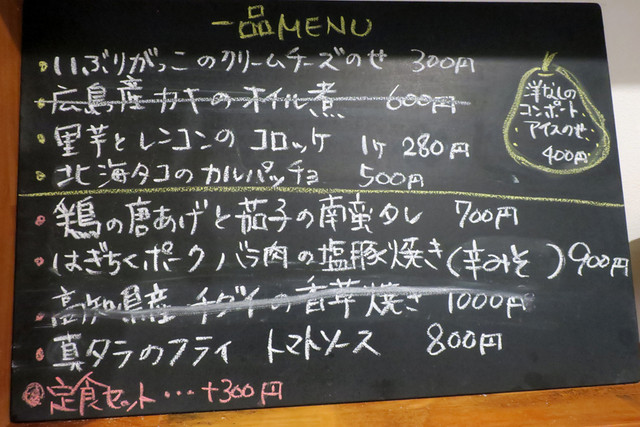 一品MENU
いぶりがっこのクリームチーズのせ 300円
広島産カキのオイル煮 600円
里芋とレンコンのコロッケ 1ケ 280円
北海タコのカルパッチョ 500円
鶏の唐あげと茄子の南蛮タレ 700円
はぎちくポークバラ肉の塩豚焼き(辛みそ) 900円
高知県産チダイの香草焼き 1000円
真タラのフライ トマトソース 800円
定食セット・・・+300円
洋なしの
コンポート、
アイスのせ、
400円